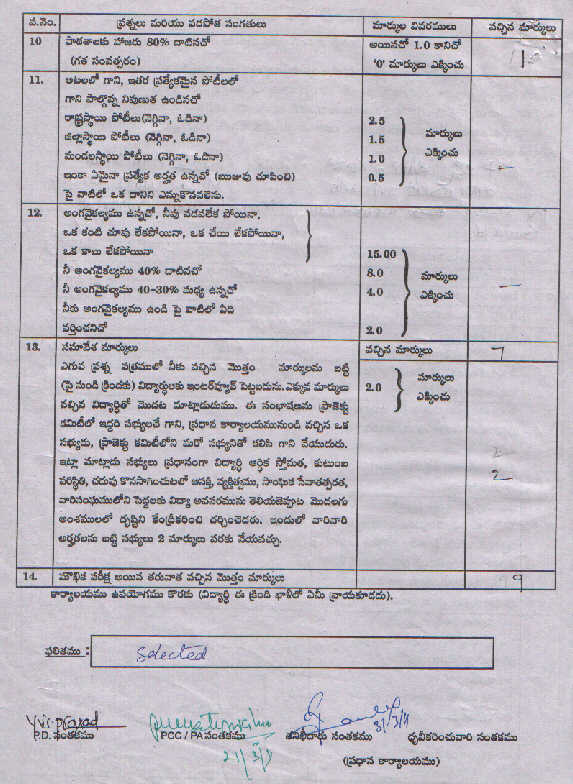 వ.నెం. ప్రశ్నలు మరియు వడపోత సంగతులు మార్కుల వివరములు వచ్చిన మార్కులు
10 పాఠశాలకు హాజరు 80% దాటినచో అయినచో 1.0 కానిచో
(గత సంవత్సరం) '0' మార్కులు ఎక్కించు
11. ఆటలలో గాని, ఇతర ప్రత్యేకమైన పోటీలలో
గాని పాల్గొన్న నిపుణత ఉండినచో
రాష్ట్రస్థాయి పోటీలు(నెగ్గినా, ఓడినా) 2.5 మార్కులు
జిల్లాస్థాయి పోటీలు (నెగ్గినా, ఓడినా) 1.5 ఎక్కించు
మండలస్థాయి పోటీలు (నెగ్గినా, ఓడినా) 1.0
ఇంకా ఏమైనా ప్రత్యేక అర్హత ఉన్నచో (ఋజువు చూపించి) 0.5 -
పై వాటిలో ఒక దానిని ఎన్నుకొనవలెను.
12. అంగవైకల్యము ఉన్నచో, నీవు నడవలేక పోయినా,
ఒక కంటి చూపు లేకపోయినా, ఒక చేయి లేకపోయినా,
ఒక కాలు లేకపోయినా 15.00
నీ అంగవైకల్యము 40% దాటినచో 8.0 మార్కులు
నీ అంగవైకల్యము 40-30% మధ్య ఉన్నచో 4.0 ఎక్కించు -
నీకు అంగవైకల్యము ఉండి పై వాటిలో ఏది
వర్తించనిచో 2.0
13. సమావేశ మార్కులు వచ్చిన మార్కులు 7
ఎగువ ప్రశ్న పత్రములో నీకు వచ్చిన మొత్తం మార్కులను బట్టి మార్కులు
(పై నుండి క్రిందకు) విద్యార్థులకు ఇంటర్వ్యూర్ పెట్టబడును. ఎక్కువ మార్కులు 2.0 ఎక్కించు
వచ్చిన విద్యార్థితో మొదట మాట్లాడుదుము. ఈ సంభాషణను ప్రాజెక్టు
కమిటీలో ఇద్దరి సభ్యులచే గాని, ప్రధాన కార్యాలయమునుండి వచ్చిన ఒక
సభ్యుడు, ప్రాజెక్టు కమిటీలోని మరో సభ్యునితో కలిసి గాని చేయుదురు.
ఇట్లా మాట్లాడు సభ్యులు ప్రధానంగా విద్యార్థి ఆర్థిక స్తోమత, కుటుంబ
పరిస్థితి, చదువు కొనసాగించుటలో ఆసక్తి, వ్యక్తిత్వము, సాంఘిక సేవాతత్పరత, 2
వారిసంఘములోని పెద్దలకు విద్యా అవసరమును తెలియజెప్పుట మొదలగు
అంశములలో దృష్టిని కేంద్రీకరించి చర్చించెదరు. ఇందులో వారివారి
అర్హతలను బట్టి సభ్యులు 2 మార్కులు వరకు వేయవచ్చు.
14. మౌఖిక పరీక్ష అయిన తరువాత వచ్చిన మొత్తం మార్కులు 9
కార్యాలయము ఉపయోగము కొరకు (విద్యార్థి ఈ క్రింది ఖాళీలో ఏమీ వ్రాయకూడదు).
ఫలితము : Selected
P.D. సంతకము PCC / PA సంతకము జనితిదారు సంతకము ధృవీకరించువారి సంతకము
21/3/11 31/3/11
(ప్రధాన కార్యాలయము)